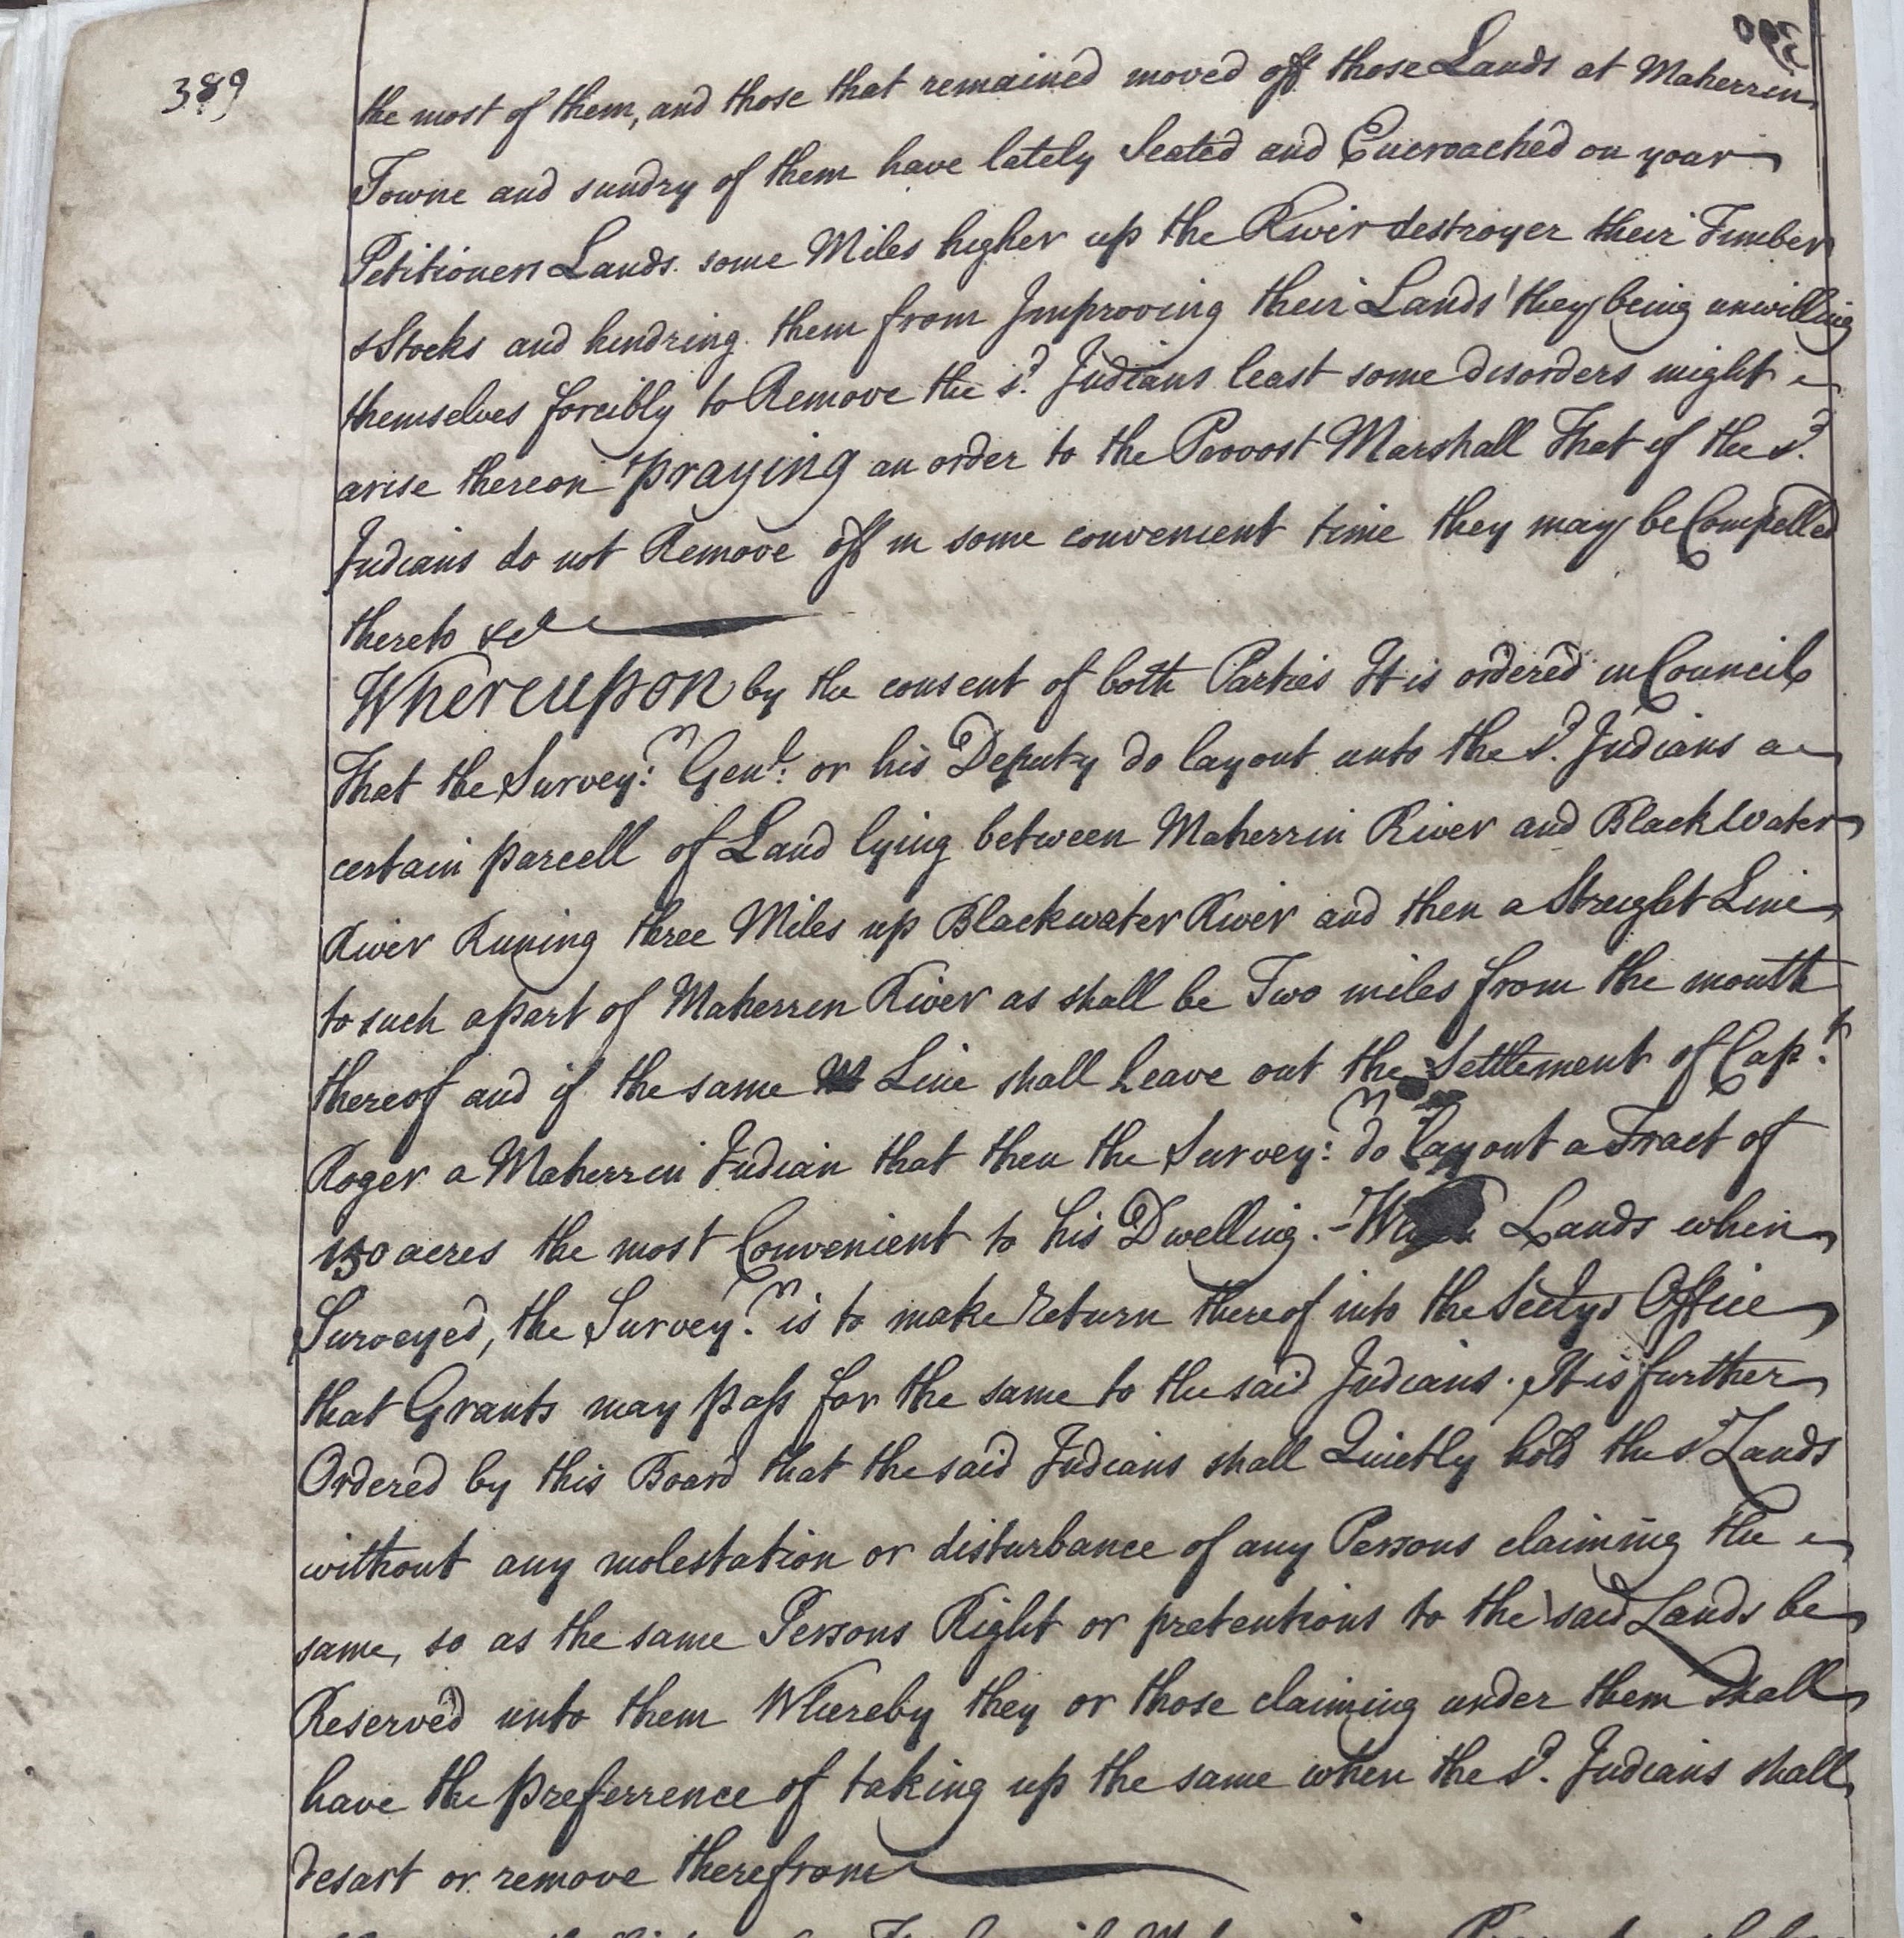 389
the most of them, and those that remained moved off those Lands at Maherrin
Towne and sundry of them have lately Seated and Encroached on your
Petitioners Lands some Miles higher up the River destroyer their Timber
& Stocks and hindring them from Improving their Lands they being unwilling
themselves forcibly to Remove the sd. Indians least some disorders might
arise thereon praying an order to the Provost Marshall That if the sd.
Indians do not Remove off in some convenient time they may be Compelled
thereto &c
Whereupon by the consent of both Parties It is ordered in Council
That the Survey:r Genl: or his Deputy do layout unto the sd. Indians a
certain parcell of Land lying between Maherrin River and Blackwater
River Runing three Miles up Blackwater River and then a Streight Line
to such a part of Maherren River as shall be Two miles from the mouth
thereof and if the same Line shall Leave out the Settlement of Capt.
Roger a Maherrin Indian that then the Survey:r do layout a Tract of
150 acres the most Convenient to his Dwelling. - Lands when
Surveyed, the Survey.r is to make Return thereof into the Sectys Office
that Grants may pass for the same to the said Indians. It is further
Ordered by this Board that the said Indians shall Quietly hold the sd Lands
without any molestation or disturbance of any Persons claiming the
same, so as the same Persons Right or pretentions to the said Lands be
Reserved unto them Whereby they or those claiming under them shall
have the preferrence of taking up the same when the sd. Indians shall
desart or remove therefrom